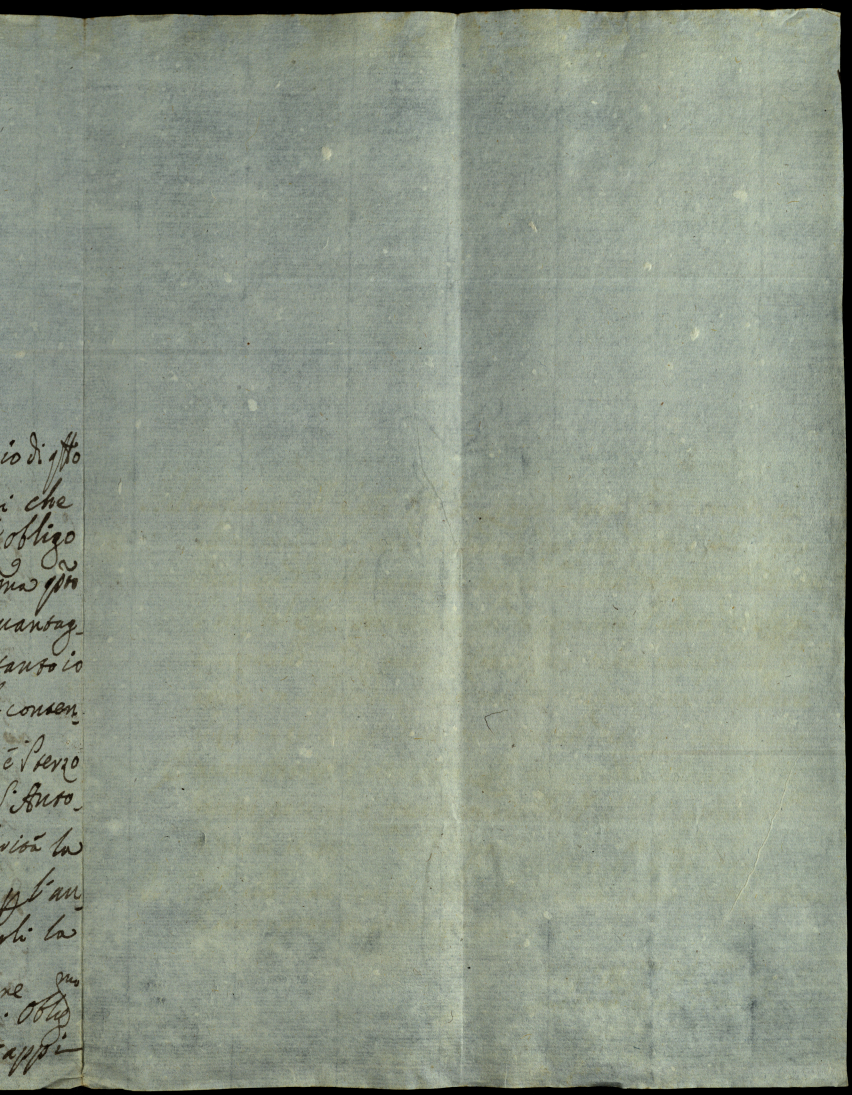 io di qsto
i che
obligo
ma qsto
uantag-
tanto io
conten-
è sterzo
S. Anto-
rità la
p l'an-
rli la
re
. Oblig mo
appi